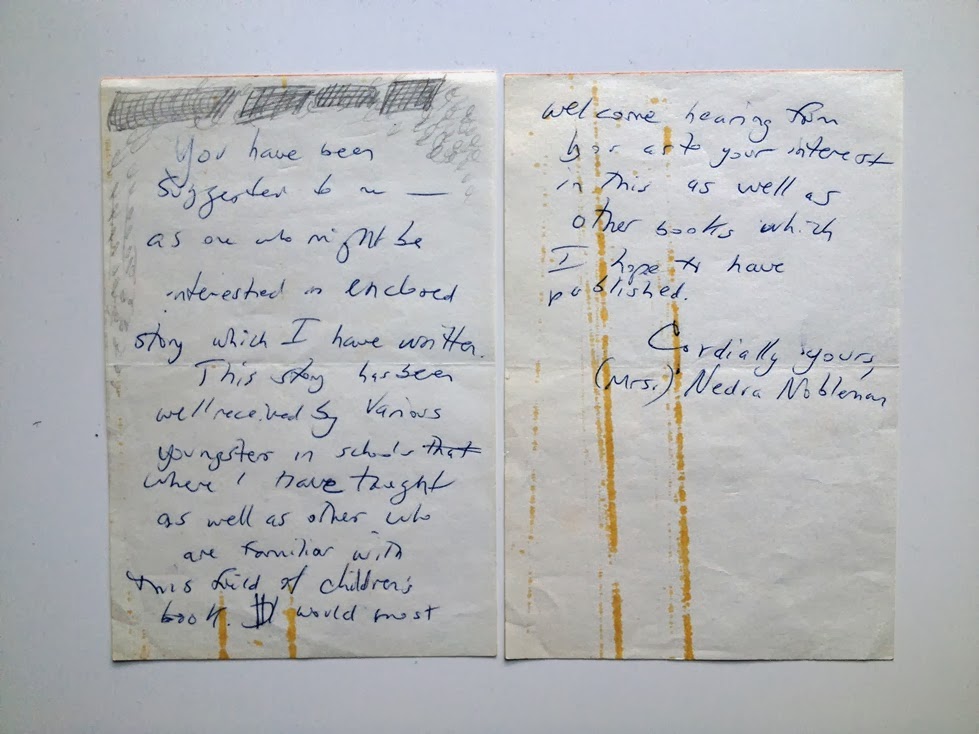 You have been
suggested to m —
as one who might be
interested in enclosed
story which I have written.
This story has been
well received by various
youngsters in schools that
where I have taught
as well as other who
are familiar with
this field of children's
book. I would most
welcome hearing from
as to your interest
in this as well as
other books which
I hope to have
published.
Cordially yours,
(Mrs.) Nedra Nobleman